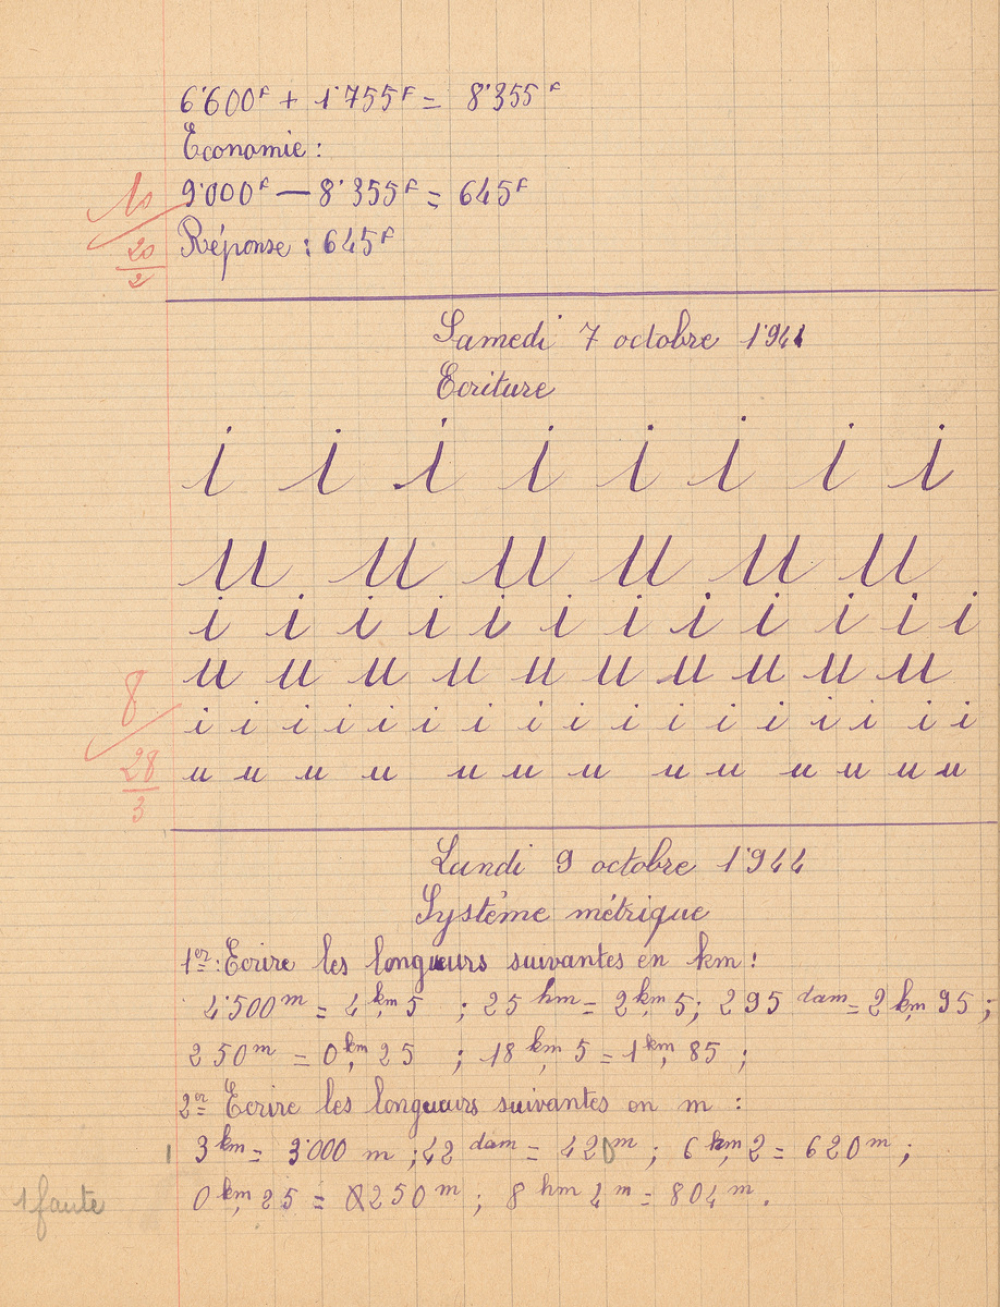 6'600F + 1'755F = 8'355F
Economie :
9'000F — 8'355F = 645F
Réponse : 645F
10
20
2
Samedi 7 octobre 1'944
Ecriture
i i i i i i i i
u u u u u u
i i i i i i i i i i i i
u u u u u u u u u
i i i i i i i i i i i i i i i i i
u u u u u u u u u u u u u
8
28
3
Lundi 9 octobre 1'944
Système métrique
1er : Ecrire les longueurs suivantes en km :
4'500 m = 4 km, 5 ; 25 hm = 2 km, 5 ; 295 dam = 2 km, 95 ;
250 m = 0 km, 25 ; 18 km, 5 = 1 km, 85 ;
2er = Ecrire les longueurs suivantes en m :
3 km = 3'000 m ; 42 dam = 420 m ; 6 km, 2 = 620 m ;
0 km, 25 = 0250 m ; 8 hm 4 m = 804 m.
1 faute